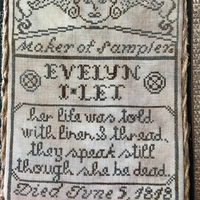 Maker of Samplers
EVELYN
I·LET
her life was told
with linen & thread,
they speak still
though she be dead.
Died June 5, 1848